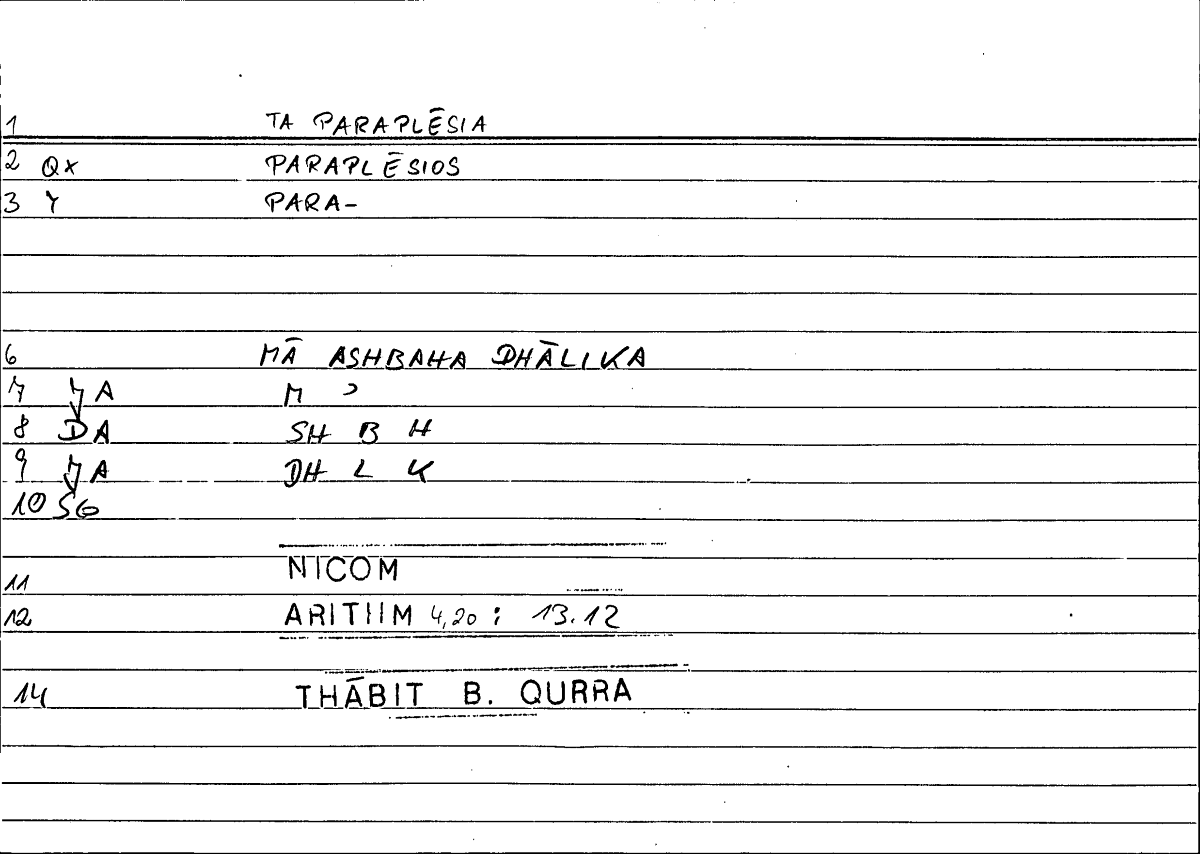 1 TA PARAPLĒSIA
2 Qx PARAPLĒSIOS
3 Y PARA-
6 MĀ ASHBAHA DHĀLIKA
7 YA M ʾ
8 DA SH B H
9 YA DH L K
10 SG
11 NICOM
12 ARITIIM 4,20 : 13.12
14 THĀBIT B. QURRA